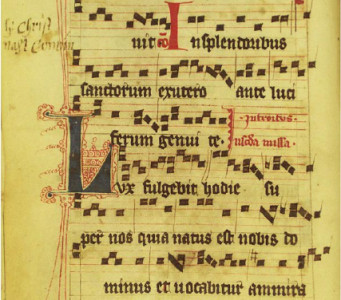 nit cō Insplendoribus
sanctorum exutero ante luci
ferum genui te. Introitus
in scda missa.
Lux fulgebit hodie su
per nos quia natus est nobis do
minus et uocabitur ammira